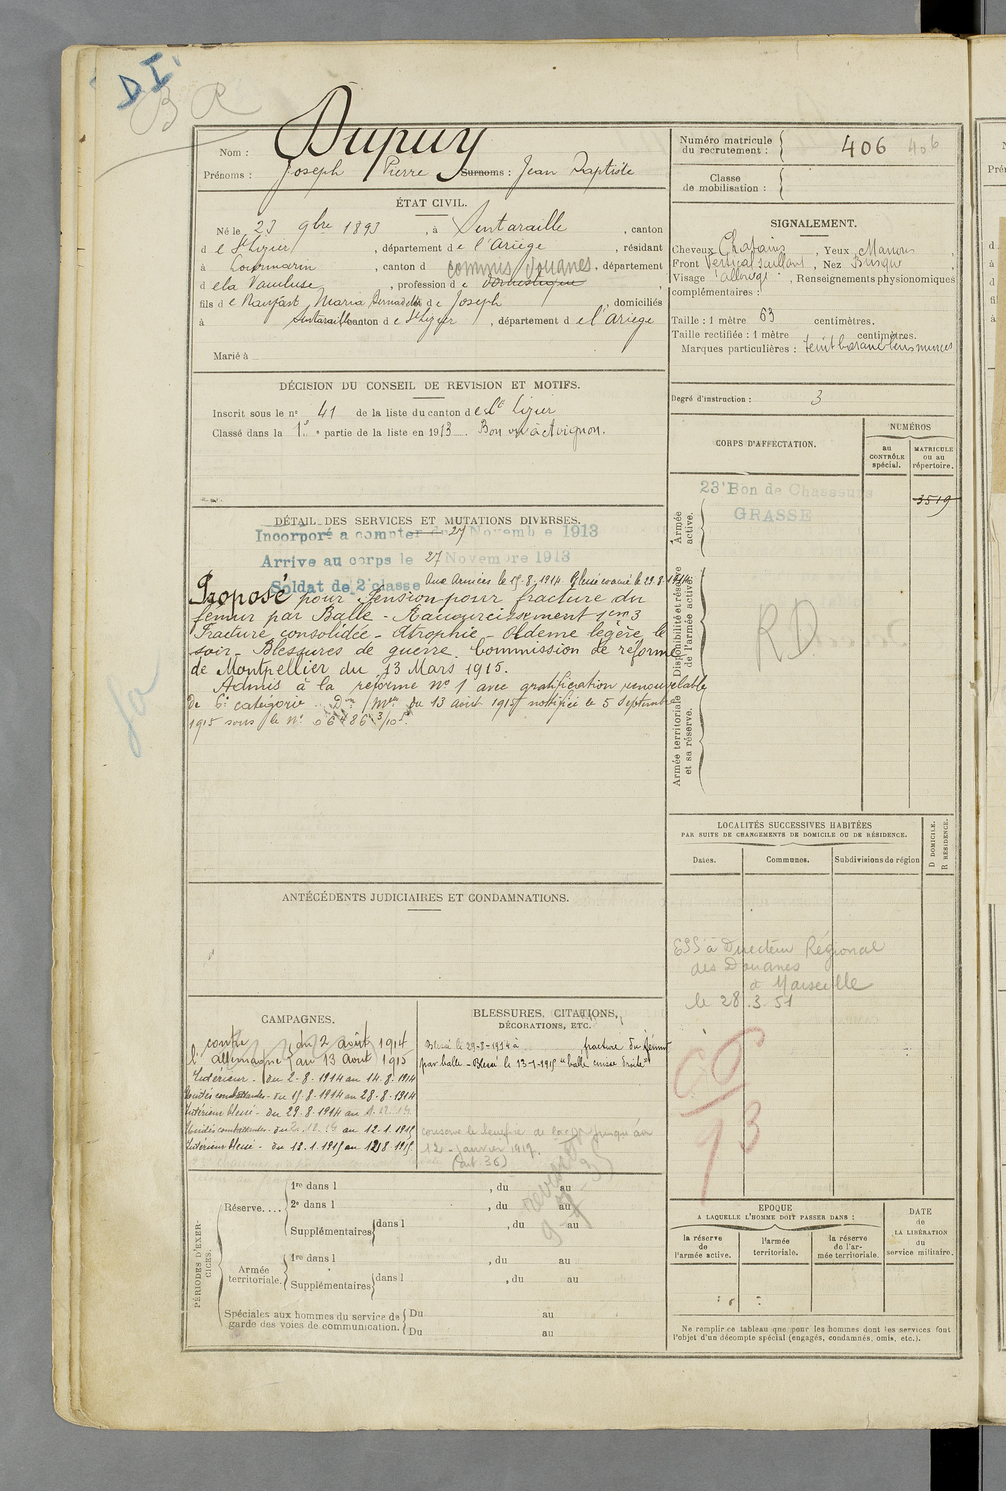 DI
BR
Nom : Dupuy
Prénoms : Joseph Pierre Surnoms : Jean Baptiste
ÉTAT CIVIL.
Né le 23 9bre 1893, à Sentaraille, canton
d e St Lizier, département d e l'Ariège, résidant
à Lourmarin, canton d commis douanes, département
d e la Vaucluse, profession de domestique
fils d e Raufast Maria Bernadette d e Joseph, domiciliés
à Sentaraille canton d e St Lizier, département d e l'Ariège
Marié à
DÉCISION DU CONSEIL DE REVISION ET MOTIFS.
Inscrit sous le n° 41 de la liste du canton d e St Lizier
Classé dans la 1e partie de la liste en 1913. Bon vu à Avignon.
DÉTAIL DES SERVICES ET MUTATIONS DIVERSES.
Incorporé a compter du 27 Novembre 1913
Arrive au corps le 27 Novembre 1913
Soldat de 2e classe Aux Armées le 15.8.1914. Blessé évacué le 29.8.1914
Proposé pour Pension pour fracture du
femur par Balle - Raccourcissement 1cm3
Fracture consolidée - Atrophie - Oedeme légère le
soir - Blessures de guerre. Commission de réforme
de Montpellier du 13 Mars 1915.
Admis à la réforme N° 1 avec gratification renouvelable
de 6e catégorie. Don Mle du 13 août 1915 notifiée le 5 Septembre
1915 sous le N°
ANTÉCÉDENTS JUDICIAIRES ET CONDAMNATIONS.
CAMPAGNES.
contre l'allemagne { du 2 août 1914
au 13 août 1915
Intérieur. du 2-8-1914 au 14-8-1914
Unités combattantes - du 15.8.1914 au 28-8-1914
Intérieur blessé - du 29.8.1914 au 1.12.14
Unités combattantes - du 2.12.14 au 12.1.1915
Intérieur blessé - du 13.1.1915 au 12 8 1915
BLESSURES, CITATIONS,
DÉCORATIONS, ETC.
Blessé le 29-8-1914 à fracture du fémur
par balle - Blessé le 13-1-1915 "balle cuisse droite"
conserve le bénéfice de jusqu'au
12 - janvier 1917.
(art 36)
PÉRIODES D'EXERCICES.
Réserve.... 1re dans l , du au
2e dans l , du au
Supplémentaires dans l , du au
Armée territoriale. 1re dans l , du au
Supplémentaires dans l , du au
Spéciales aux hommes du service de garde des voies de communication. Du au
Du au
Numéro matricule du recrutement : 406 406
Classe de mobilisation :
SIGNALEMENT.
Cheveux Chatains, Yeux Marrons
Front Vertical saillant, Nez Busqué
Visage allongé, Renseignements physionomiques
complémentaires :
Taille : 1 mètre 63 centimètres.
Taille rectifiée : 1 mètre centimètres.
Marques particulières :
Degré d'instruction : 3
CORPS D'AFFECTATION.
NUMÉROS
au CONTRÔLE spécial.
MATRICULE ou au répertoire.
Armée active.
23e Bon de Chasseurs
GRASSE
3519
Disponibilité et réserve de l'armée active.
RD
Armée territoriale et sa réserve.
LOCALITÉS SUCCESSIVES HABITÉES
PAR SUITE DE CHANGEMENTS DE DOMICILE OU DE RÉSIDENCE.
Dates. Communes. Subdivisions de région
D DOMICILE.
R RÉSIDENCE.
ESS à Directeur Régional
des Douanes
à Marseille
le 28.3.51
93
EPOQUE
A LAQUELLE L'HOMME DOIT PASSER DANS :
la réserve de l'armée active.
l'armée territoriale.
la réserve de l'armée territoriale.
DATE
de
LA LIBÉRATION
du
service militaire.
Ne remplir ce tableau que pour les hommes dont les services font
l'objet d'un décompte spécial (engagés, condamnés, omis, etc.).